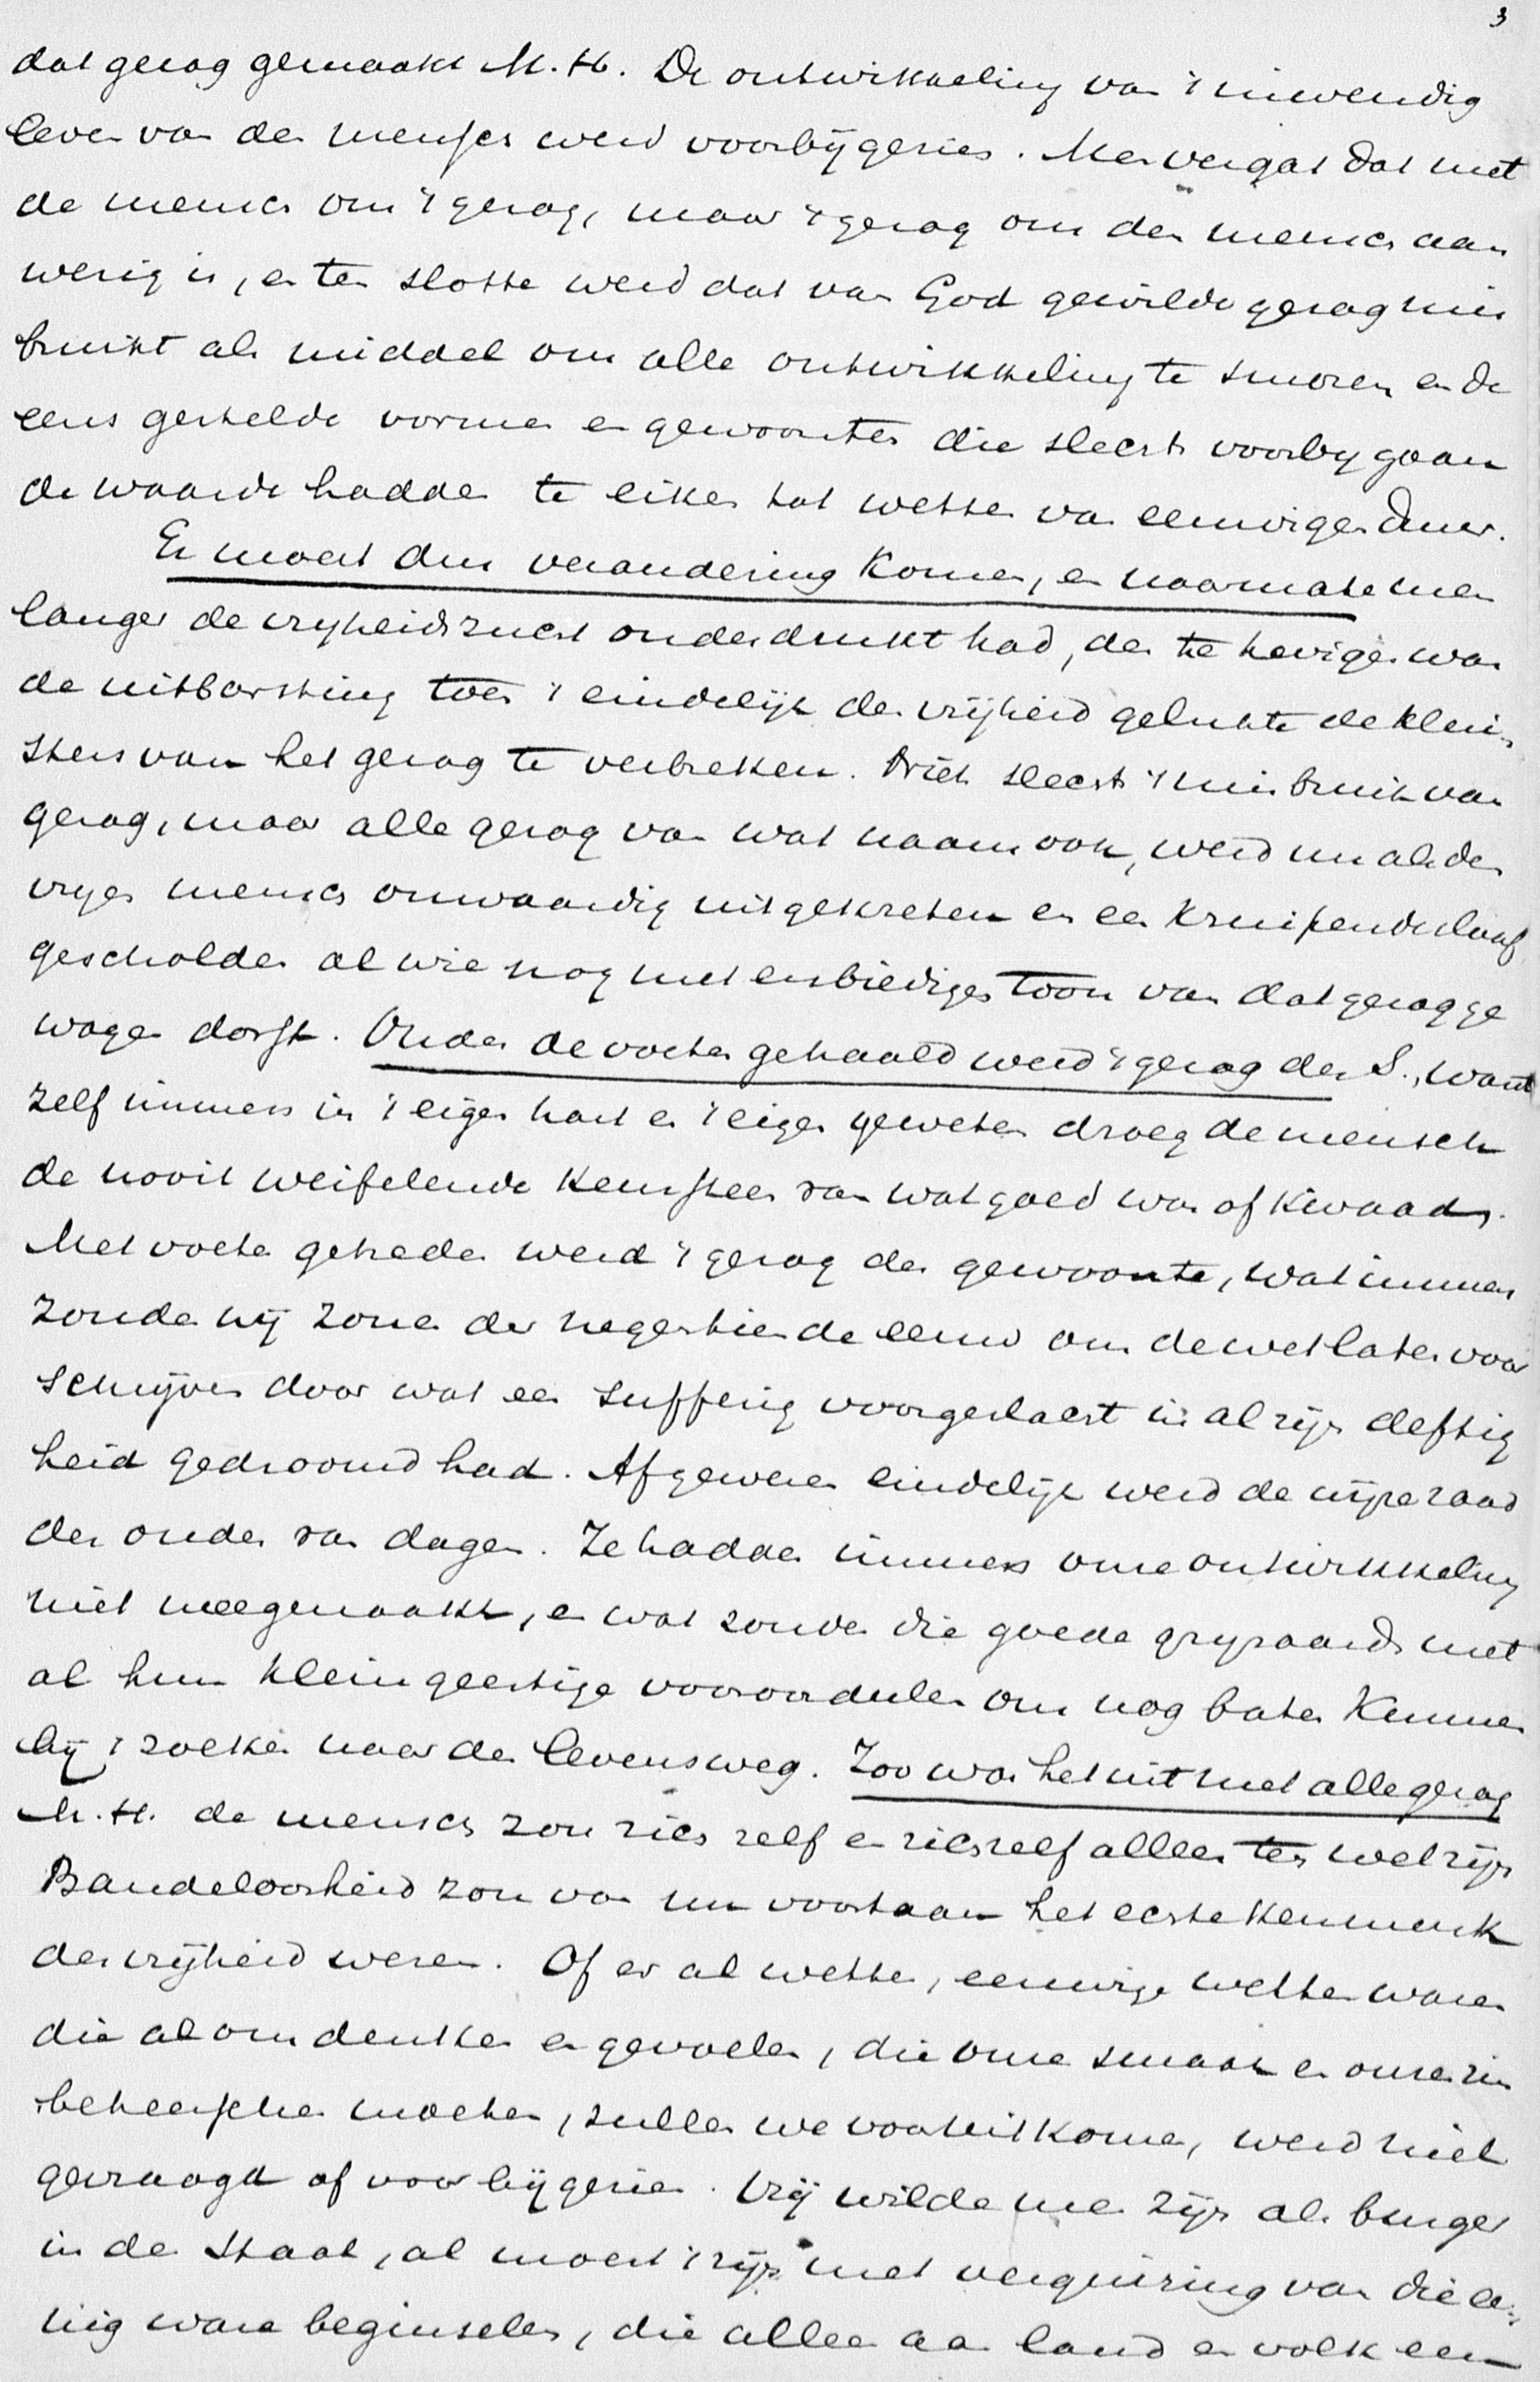 3
dat gezag gemaakt M. H. De ontwikkeling van 't inwendig
leven van den mensch werd voorbijgezien. Men vergat dat niet
de mensch om 't gezag, maar 't gezag om den mensch aan
wezig is, en ten slotte werd dat van God gewilde gezag mis
bruikt als middel om alle ontwikkeling te smoren en de
eens gestelde vormen en gewoonten die slechts voorbygaan
de waarde hadden te eiken tot wetten van eeuwigen duur.
Er moest dus verandering komen, en naarmate men
langer de vryheidszucht onderdrukt had, des te heviger was
de uitbarsting toen 't eindelijk der vrijheid gelukte de klui-
sters van het gezag te verbreken. Niet slechts 't misbruik van
gezag, maar alle gezag van wat naam ook, werd nu als den
vryen mensch onwaardig uitgekreten en een kruipende slaaf
gescholden al wie nog met eerbiedigen toon van dat gezag ge
wagen dorst. Onder de voeten gehaald werd 't gezag der S., want
zelf immers in 't eigen hart en 't eigen geweten droeg de mensch
de nooit weifelende kenster van wat goed was of kwaad.
Met voeten getreden werd 't gezag der gewoonte, wat immers
zouden wij zonen der negentiende eeuw ons de wet laten voor
schrijven door wat een sufferig voorgeslacht in al zijn deftig
heid gedroomd had. Afgewezen eindelijk werd de wijze raad
der ouden van dagen. Ze hadden immers onze ontwikkeling
niet meegemaakt, en wat zouden die goede grysaards met
al hun kleingeestige vooroordeelen ons nog baten kunnen
bij 't zoeken naar den levensweg. Zoo was het uit met alle gezag
M. H. de mensch zou zich zelf en zichzelf alleen ten wet zijn
Bandeloosheid zou van nu voortaan het eerste kenmerk
der vrijheid wezen. Of er al wetten, eeuwige wetten waren
die al ons denken en gevoelen, die onze smaak en onzen zin
beheerschen moeten, zullen we vooruitkomen, werd niet
gevraagd of voorbijgezien. Vrij wilde men zijn als burger
in den staat, al moest 't zijn met verguizing van die ee-
nig ware beginselen, die alleen aan land en volk een